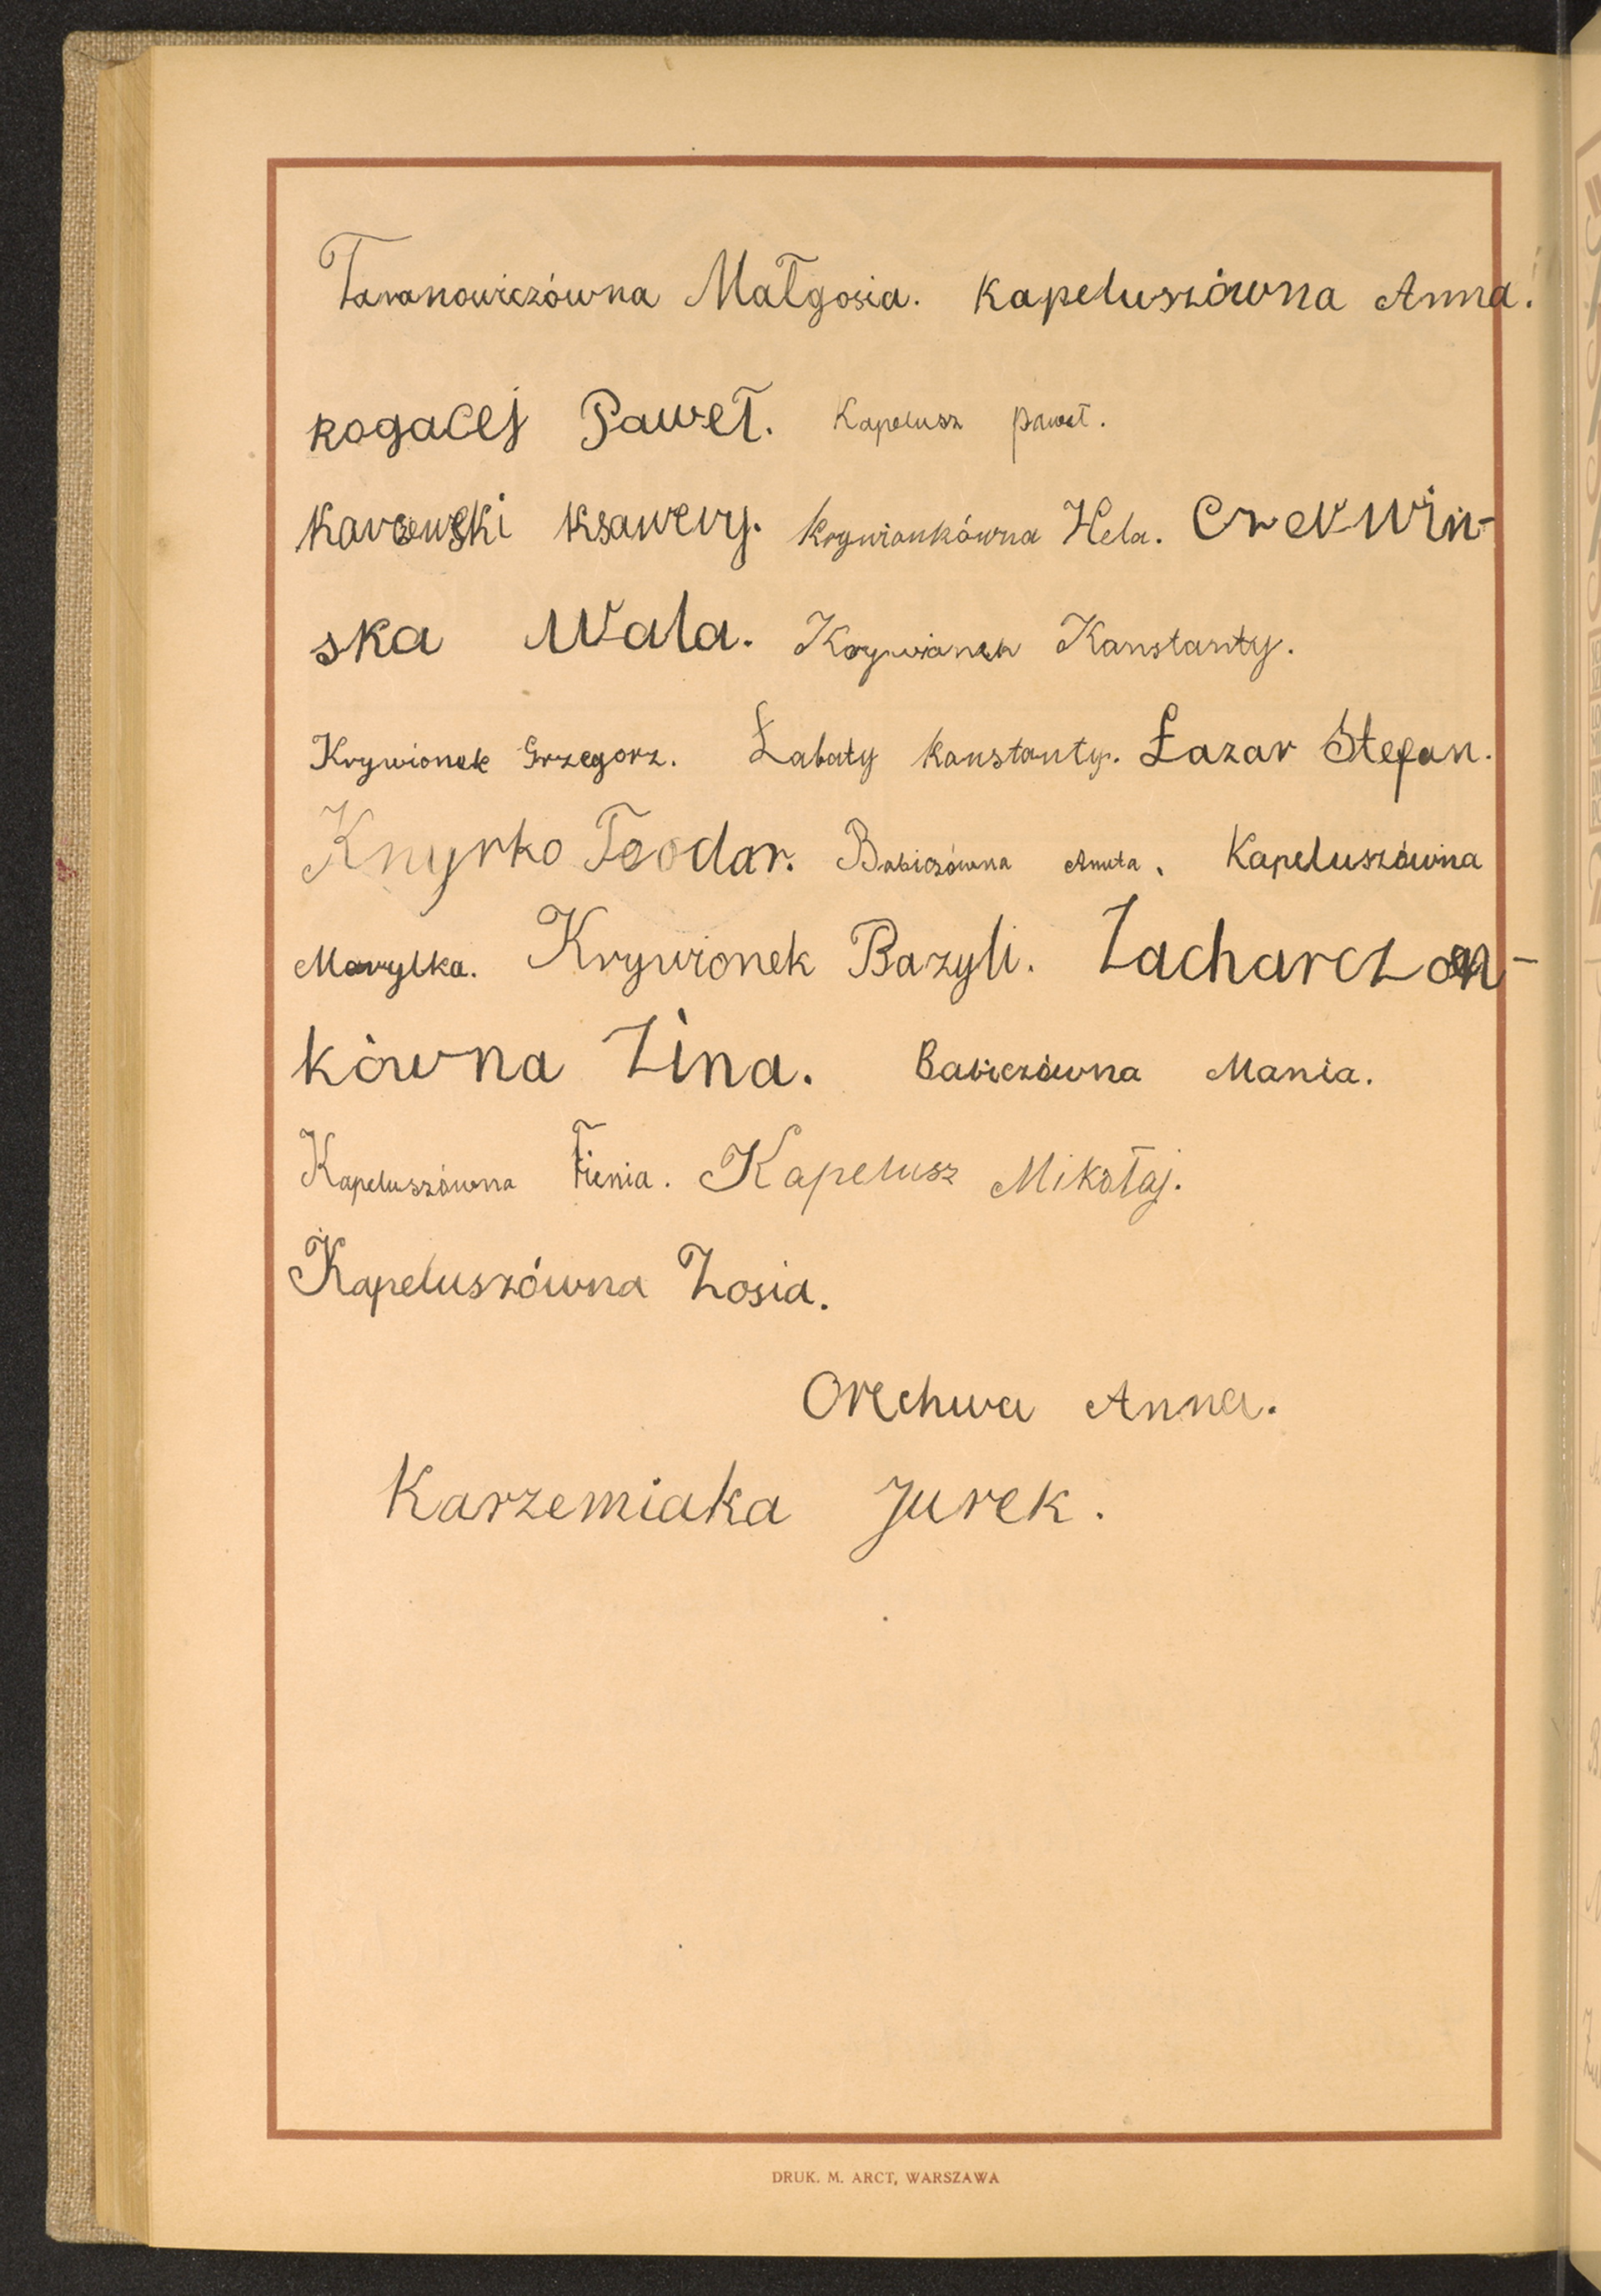 Taranowiczówna Małgosia. Kapeluszówna Anna.
Rogacej Paweł. Kapelusz Paweł.
Karzewski Ksawery. Krywionkówna Hela. Czerwiń-
ska Wala. Krywionek Konstanty.
Krywionek Grzegorz. Łabaty Konstanty. Łazar Stefan.
Knyrko Teodor. Babiczówna Anuta. Kapeluszówna
Marylka. Krywionek Bazyli. Zacharczon-
kówna Zina. Babiczówna Mania.
Kapeluszówna Fienia. Kapelusz Mikołaj.
Kapeluszówna Zosia.
Orechwa Anna.
Karzemiaka Jurek.
DRUK. M. ARCT, WARSZAWA